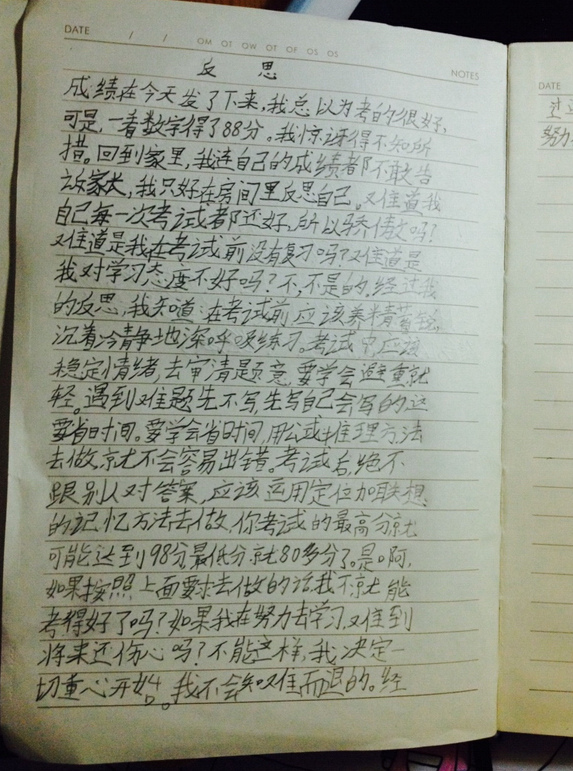 DATE / /
OM OT OW OT OF OS OS
反 思
NOTES
成绩在今天发了下来,我总以为考的很好,
可是,一看数字得了88分。我惊讶得不知所
措。回到家里,我连自己的成绩都不敢告
诉家长,我只好在房间里反思自己。难道我
自己每一次考试都还好,所以骄傲了吗?
难道是我在考试前没有复习吗?难道是
我对学习态度不好吗?不,不是的。经过我
的反思,我知道:在考试前应该养精蓄锐,
沉着冷静地深呼吸练习。考试中应该
稳定情绪,去审清题意,要学会避重就
轻。遇到难题先不写,先写自己会写的这
要省时间。要学会省时间,用公式推理方法
去做,就不会容易出错。考试后,绝不
跟别人对答案,应该运用定位加联想
的记忆方法去做,你考试的最高分就
可能达到98分最低分就80多分了。是啊,
如果按照上面要求去做的话,我不就能
考得好了吗?如果我在努力去学习,难到
将来还伤心吗?不能这样,我决定一
切重心开始。我不会知难而退的。经
DATE
努力